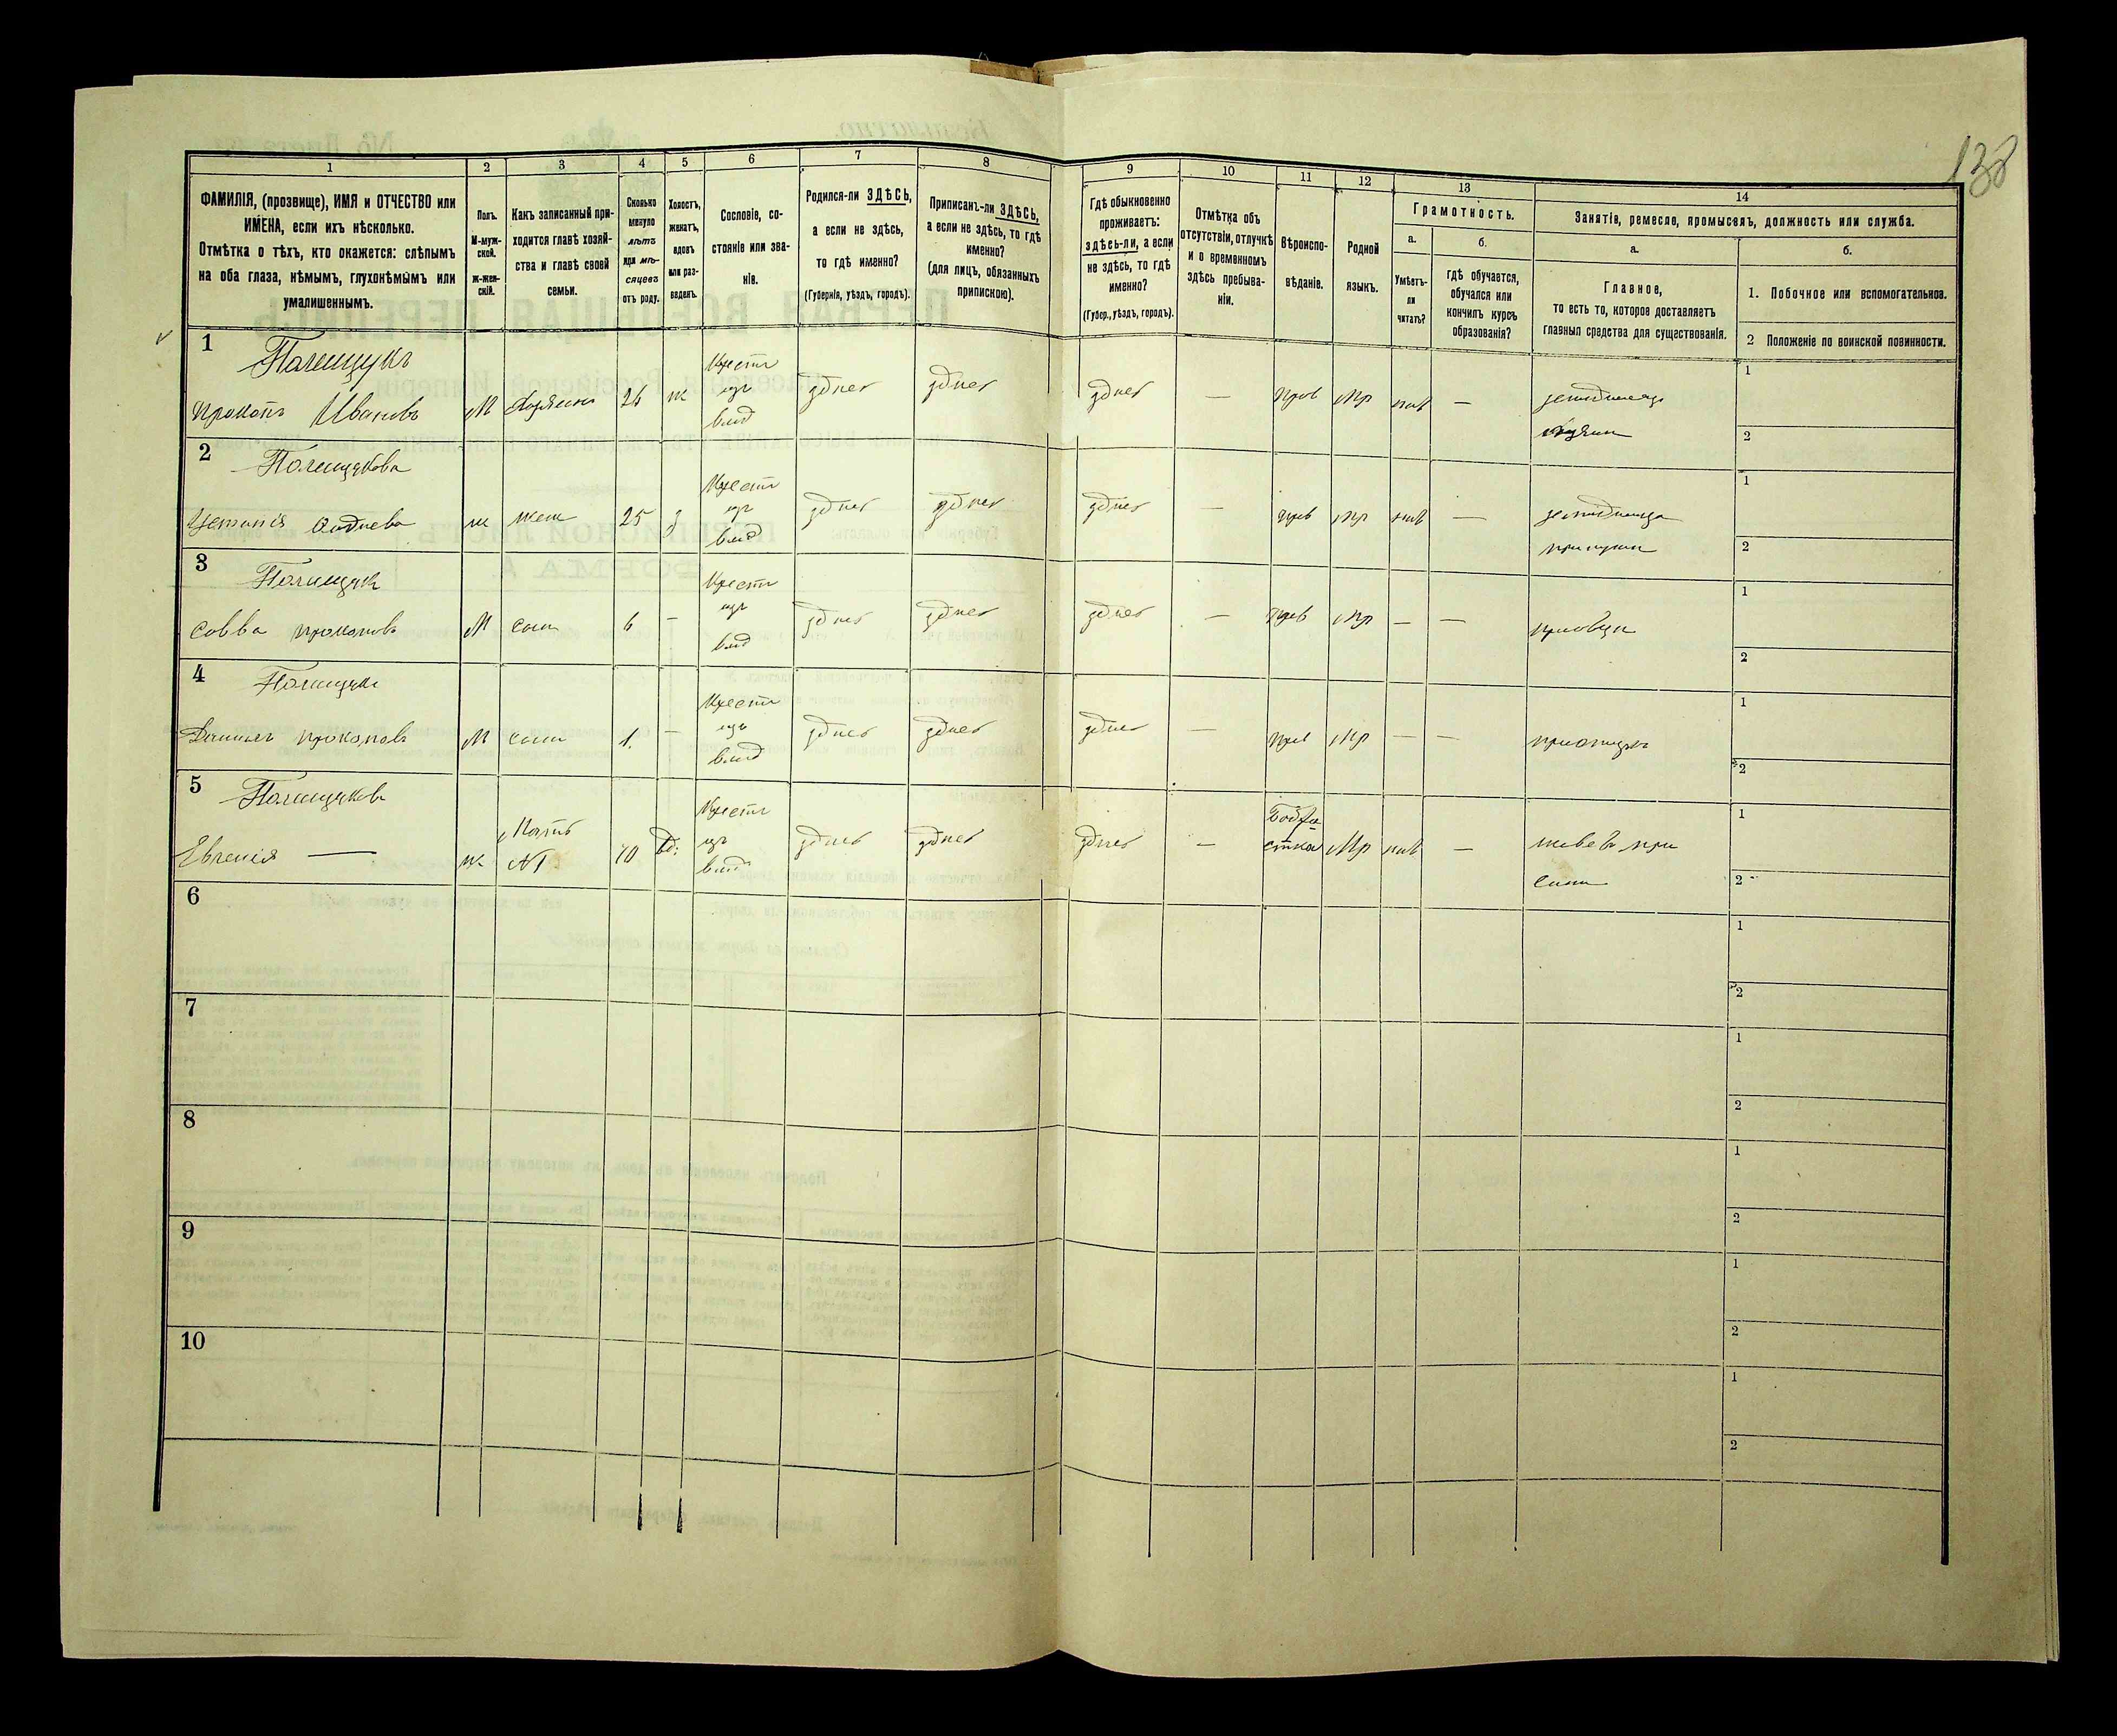 138
1 2 3 4 5 6 7 8 9 10 11 12 13 14
ФАМИЛІЯ, (прозвище), ИМЯ и ОТЧЕСТВО или
ИМЕНА, если ихъ нѣсколько.
Отмѣтка о тѣхъ, кто окажется: слѣпымъ
на оба глаза, нѣмымъ, глухонѣмымъ или
умалишеннымъ.
Полъ.
М-муж-
ской.
ж-жен-
скій.
Какъ записанный при-
ходится главѣ хозяй-
ства и главѣ своей
семьи.
Сколько
минуло
лѣтъ
или мѣ-
сяцевъ
отъ роду.
Холостъ,
женатъ,
вдовъ
или раз-
веденъ.
Сословіе, со-
стояніе или зва-
ніе.
Родился-ли ЗДѢСЬ,
а если не здѣсь,
то гдѣ именно?
(Губернія, уѣздъ, городъ).
Приписанъ-ли ЗДѢСЬ,
а если не здѣсь, то гдѣ
именно?
(для лицъ, обязанныхъ
припискою).
Гдѣ обыкновенно
проживаетъ:
здѣсь-ли, а если
не здѣсь, то гдѣ
именно?
(Губер., уѣздъ, городъ).
Отмѣтка объ
отсутствіи, отлучкѣ
и о временномъ
здѣсь пребыва-
ніи.
Вѣроиспо-
вѣданіе.
Родной
языкъ.
Грамотность.
а.
Умѣетъ-
ли
читать?
б.
гдѣ обучается,
обучался или
кончилъ курсъ
образованія?
Занятіе, ремесло, промыселъ, должность или служба.
а.
Главное,
то есть то, которое доставляетъ
главныя средства для существованія.
б.
1. Побочное или вспомогательное.
2 Положеніе по воинской повинности.
1
Полищукъ
Прокопъ Ивановъ М Хозяинъ 26 ж Крестн изъ влад здѣсь здѣсь здѣсь — Прав Мр нѣт —
1
2
2
Полищукова
ж жена 25 з Крестн изъ влад здѣсь здѣсь здѣсь — Прав Мр нѣт —
1
2
3
Полищук
Савва Прокоповъ М сын 6 — Крестн изъ влад здѣсь здѣсь здѣсь — Прав Мр — —
при отцѣ
1
2
4
Полищукъ
Данилъ Прокоповъ М сын 1. — Крестн изъ влад здѣсь здѣсь здѣсь — Прав Мр — —
при отцѣ
1
2
5
Полищукова
Евгенія — ж Мать N1 70 вд: Крестн изъ влад здѣсь здѣсь здѣсь — Мр нѣт —
при
сыне
1
2
6
1
2
7
1
2
8
1
2
9
1
2
10
1
2